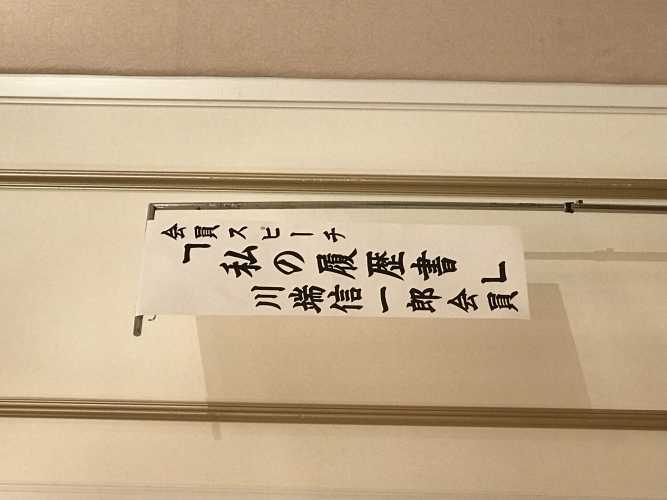 会員スピーチ
「私の履歴書」
川端信一郎会員